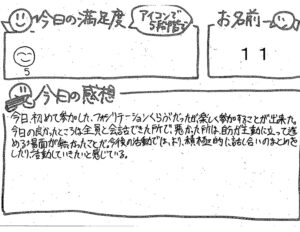 今日の満足度
アイコンで
5段階で
お名前
5
11
今日の感想
今日、初めて参加した、ファシリテーションくらぶだったが、楽しく参加することが出来た。
今日の良かったところは全員と会話できた所で、悪かった所は、自分が主動に立って進
める場面が無かったことだ。今後の活動では、より、積極的に話し合いのまとめをし
たり、活動していきたいと感じている。